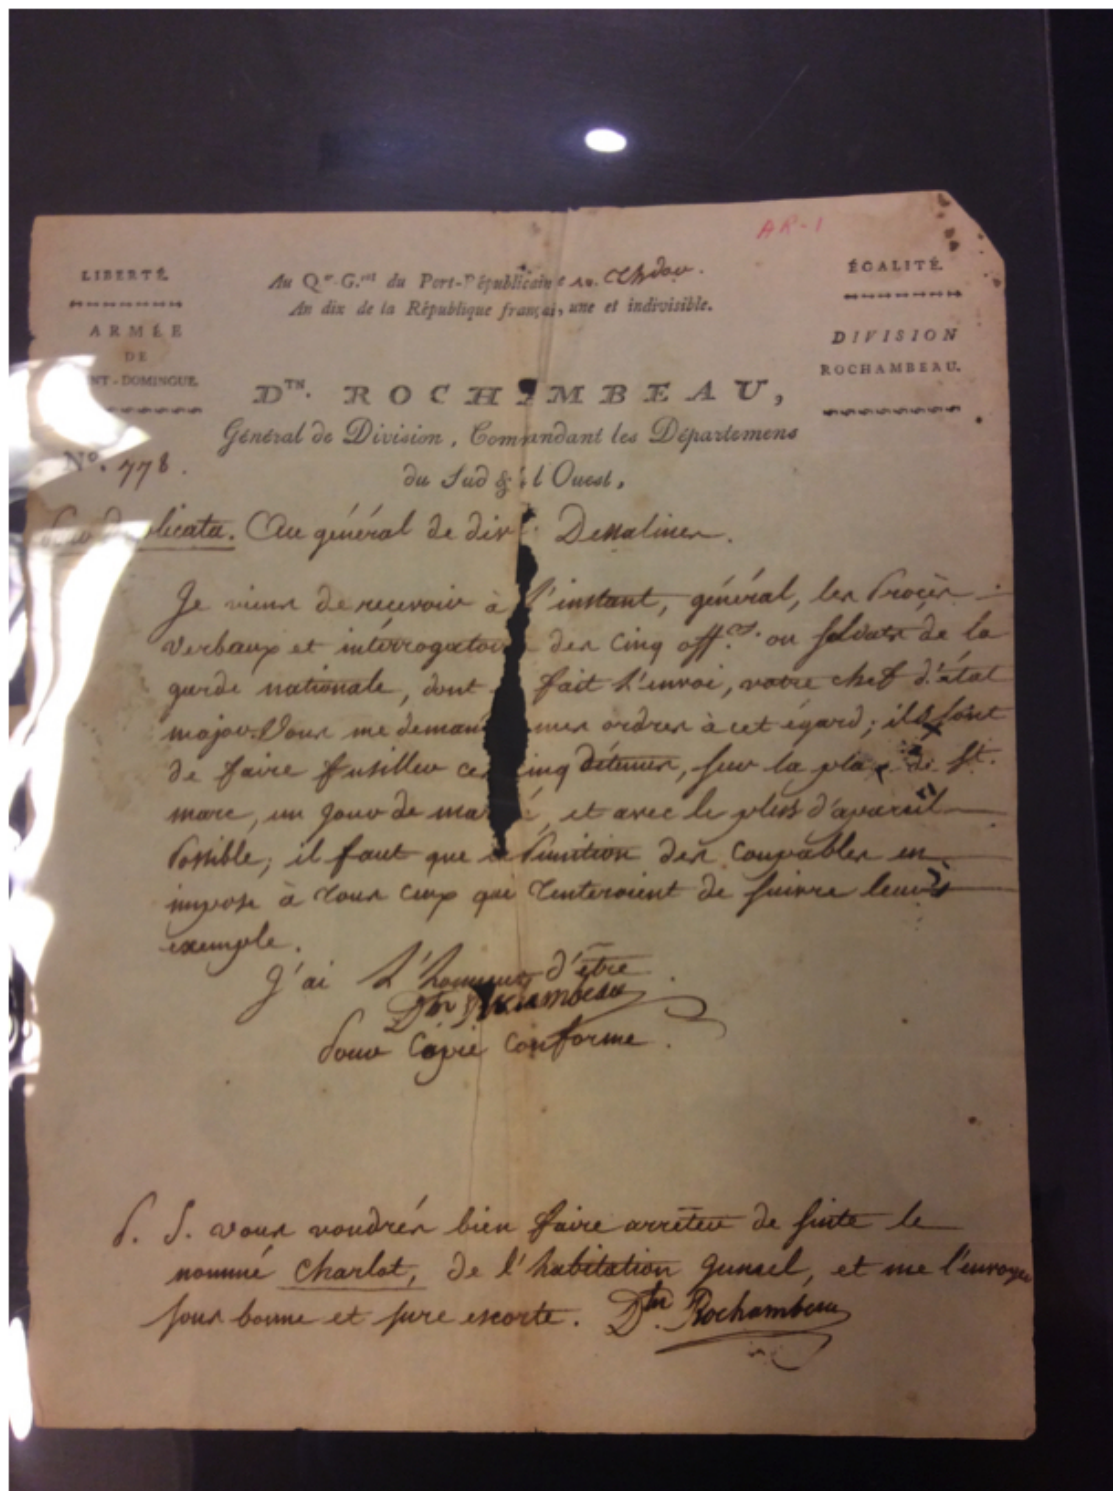 AR-1
LIBERTÉ.
ARMÉE
DE
NT-DOMINGUE.
Nº. 778.
Au Qer. G.ral du Port-Républicain 10.
An dix de la République françai, une et indivisible.
ÉGALITÉ.
DIVISION
ROCHAMBEAU.
DTN. ROCHAMBEAU,
Général de Division, Commandant les Départemens
du Sud & l'Ouest,
plicata. Au général de divn. Dessalines.
Je viens de recevoir à l'instant, général, les Procès
verbaux et interrogatoir des cinq offrs. ou soldats de la
garde nationale, dont fait l'envoi, votre chef d'état
major. Vous me demand mes ordres à cet égard; ils sont
de faire fusiller ces cinq détenus, sur la place de St.
marc, un jour de marché, et avec le plus d'apareil
Possible; il faut que la Punition des coupables en
impose à tous ceux qui tenteroient de suivre leurs
exemple.
J'ai l'honneur d'être
Dtn Rochambeau
Pour Copie Conforme.
P. S. vous voudrés bien faire arrêter de suite le
nommé Charlot, de l'habitation Gunsel, et me l'envoyer
sous bonne et sure escorte. Dtn. Rochambeau